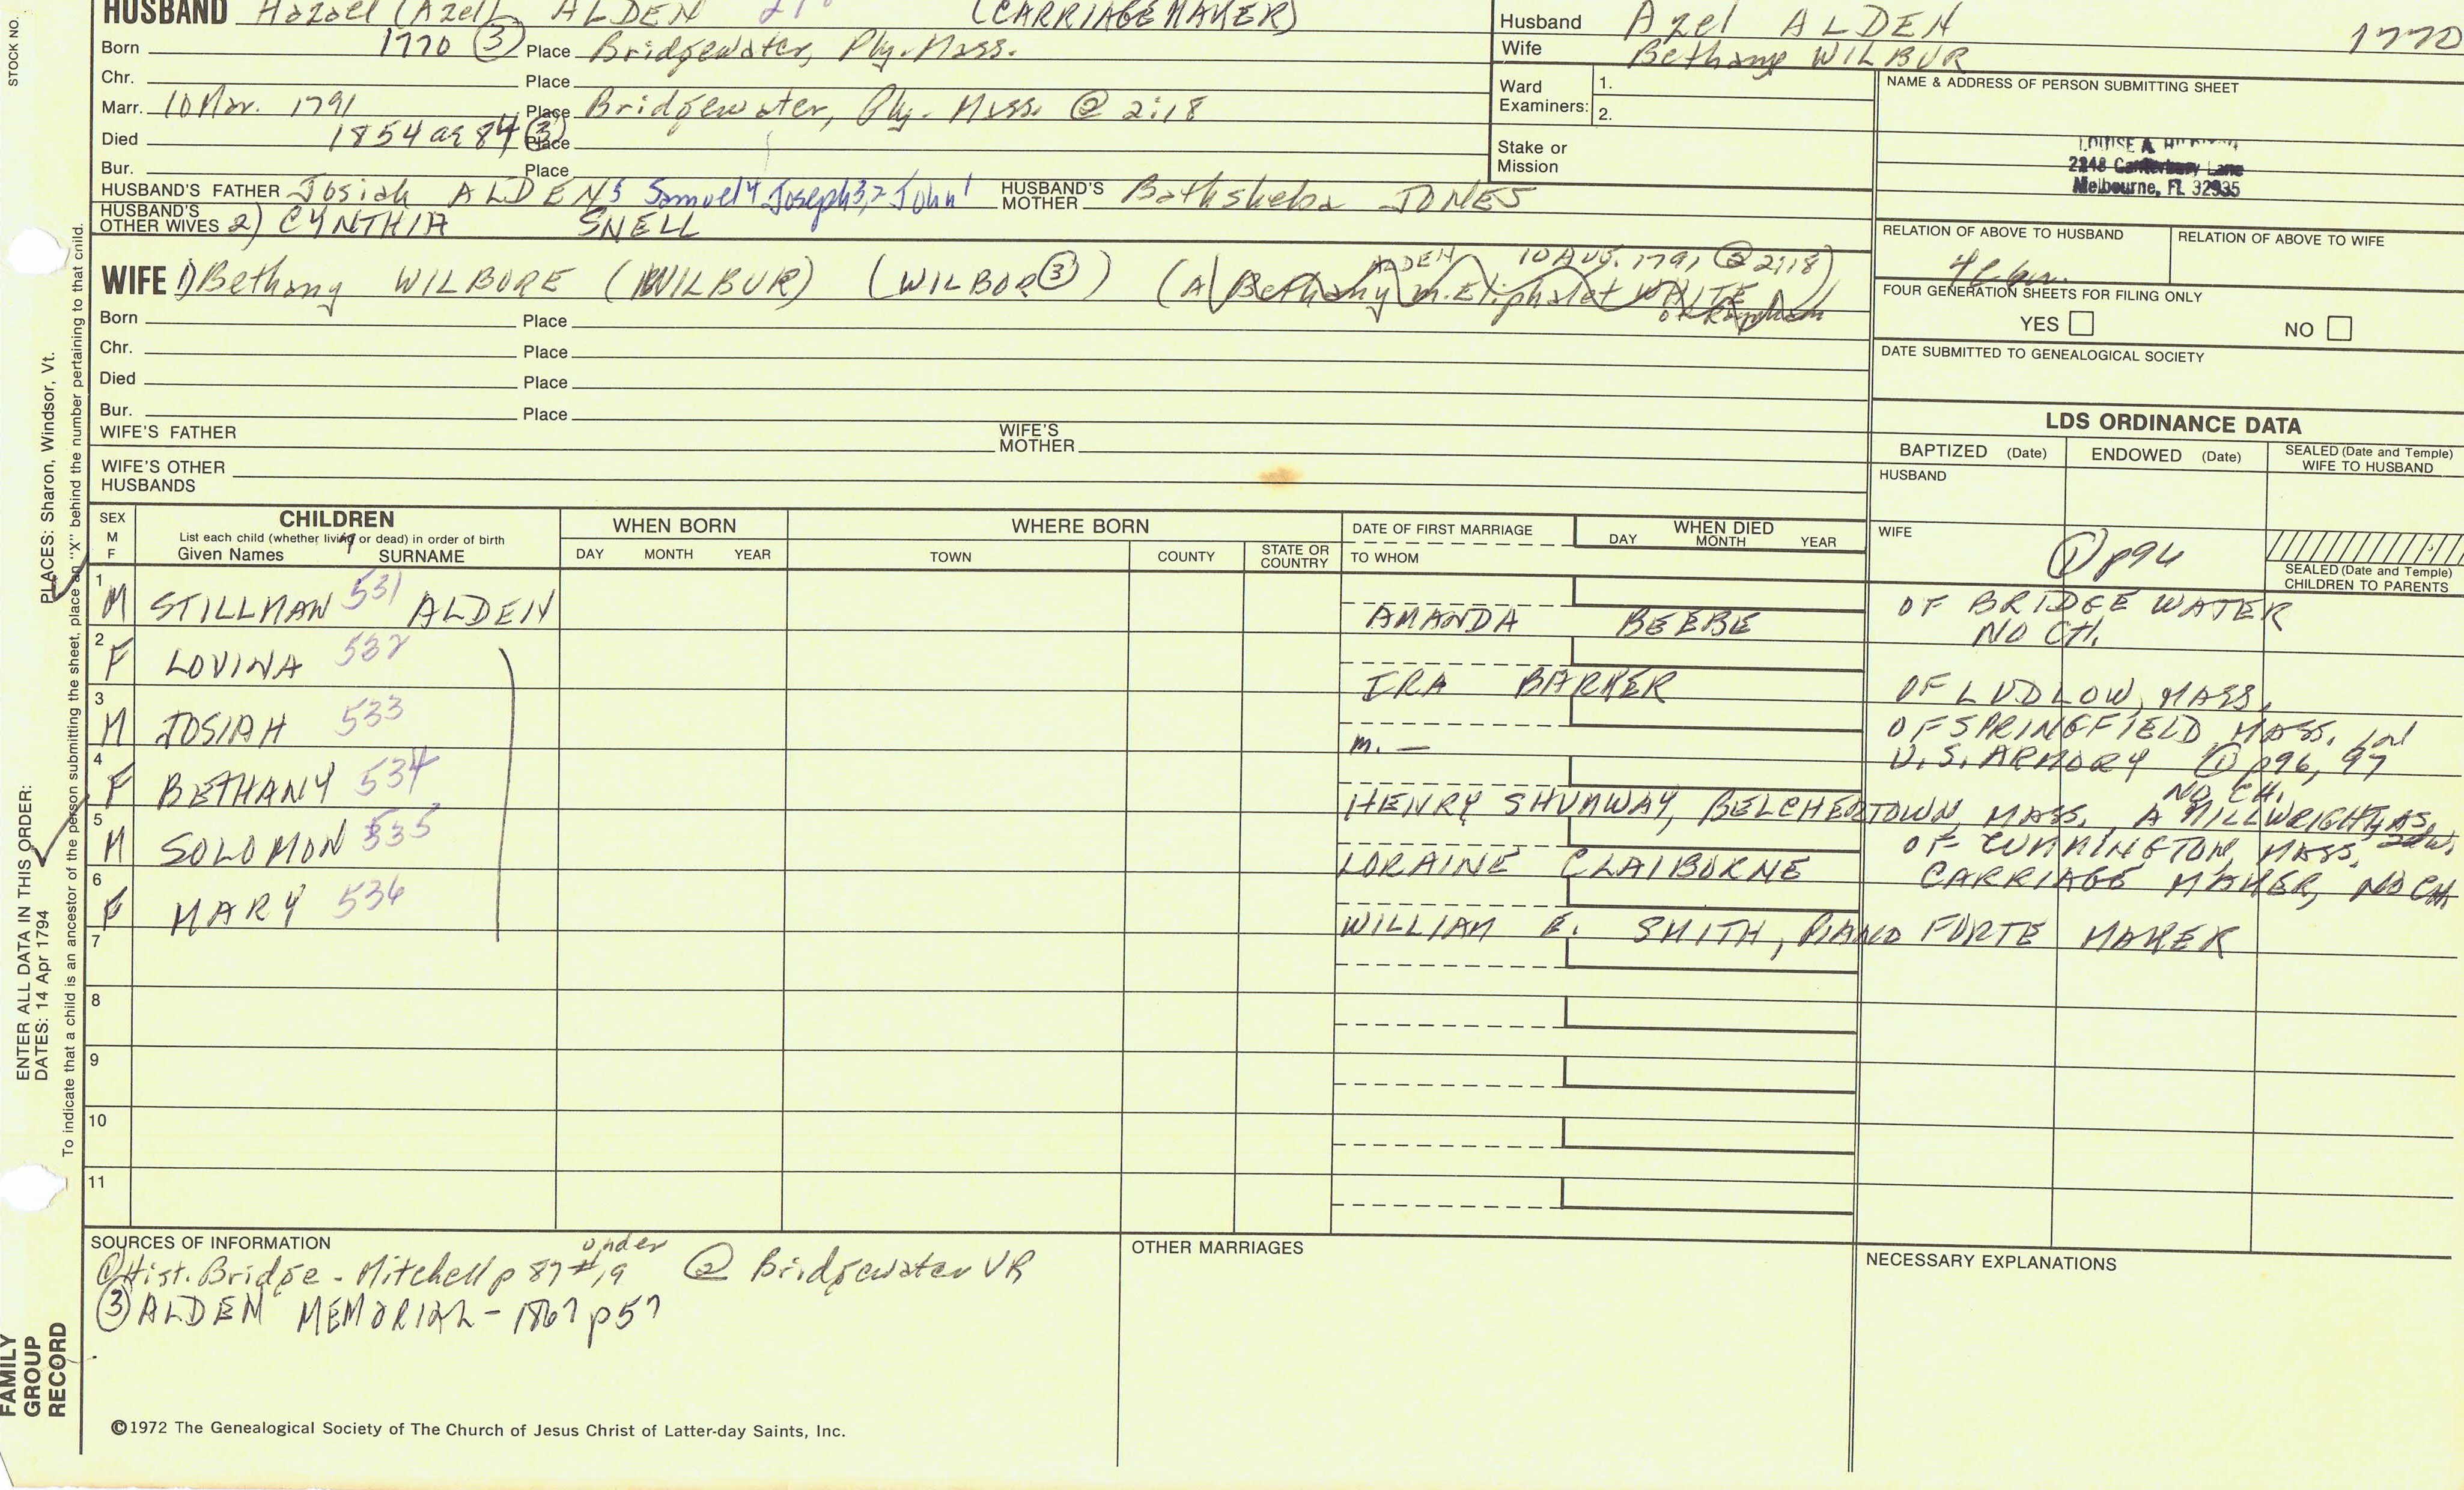 STOCK NO.
HUSBAND Hazael (Azel) ALDEN (CARRIAGE MAKER)
Born 1770 (3) Place Bridgewater, Ply. Mass.
Chr. Place
Marr. 10 Mar. 1791 Place Bridgewater, Ply. Mass. @ 2:18
Died 1854 ae 84 (3) Place
Bur. Place
HUSBAND'S FATHER Josiah ALDEN 5 Samuel 4 Joseph 3,2 John 1 HUSBAND'S MOTHER Bathsheba JONES
HUSBAND'S OTHER WIVES 2) CYNTHIA SNELL
Husband Azel ALDEN 1770
Wife Bethany WILBUR
Ward Examiners: 1.
2.
Stake or Mission
NAME & ADDRESS OF PERSON SUBMITTING SHEET
LOUISE A.
2248 Canterbury Lane
Melbourne, FL 32935
RELATION OF ABOVE TO HUSBAND RELATION OF ABOVE TO WIFE
FOUR GENERATION SHEETS FOR FILING ONLY
YES NO
DATE SUBMITTED TO GENEALOGICAL SOCIETY
ALDEN 10 AUG. 1791 @ 2:18)
WIFE 1) Bethany WILBORE (WILBUR) (WILBOR (3)) (A Bethany m. Eliphalet WAITE
Born Place
Chr. Place
Died Place
Bur. Place
WIFE'S FATHER WIFE'S MOTHER
WIFE'S OTHER HUSBANDS
LDS ORDINANCE DATA
BAPTIZED (Date) ENDOWED (Date) SEALED (Date and Temple) WIFE TO HUSBAND
HUSBAND
WIFE
SEALED (Date and Temple) CHILDREN TO PARENTS
SEX M F
CHILDREN
List each child (whether living or dead) in order of birth
Given Names SURNAME
WHEN BORN
DAY MONTH YEAR
WHERE BORN
TOWN COUNTY STATE OR COUNTRY
DATE OF FIRST MARRIAGE
TO WHOM
WHEN DIED
DAY MONTH YEAR
1 M STILLMAN 531 ALDEN AMANDA BEEBE OF BRIDGEWATER
NO CH.
2 F LOVINA 532 IRA BARKER OF LUDLOW, MASS.
3 M JOSIAH 533 m. — OF SPRINGFIELD MASS. in
U.S. ARMORY (1) p96, 97
NO CH.
4 F BETHANY 534 HENRY SHUMWAY, BELCHERTOWN, MASS. A MILLWRIGHT,
5 M SOLOMON 535 LORAINE CLAIBORNE OF CUMMINGTON, MASS.
CARRIAGE MAKER, NO CH.
6 F MARY 536 WILLIAM E. SMITH, PIANO FORTE MAKER
7
8
9
10
11
SOURCES OF INFORMATION
(1) Hist. Bridge - Mitchell p 87 under #19 @ Bridgewater VR
(3) ALDEN MEMORIAL - 1867 p57
OTHER MARRIAGES
NECESSARY EXPLANATIONS
©1972 The Genealogical Society of The Church of Jesus Christ of Latter-day Saints, Inc.
FAMILY GROUP RECORD
ENTER ALL DATA IN THIS ORDER:
DATES: 14 Apr 1794 PLACES: Sharon, Windsor, Vt.
To indicate that a child is an ancestor of the person submitting the sheet, place an "X" behind the number pertaining to that child.